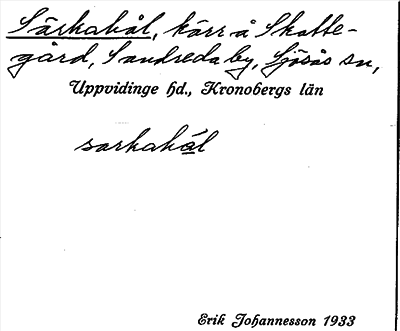 Särkahål, kärr å Skatte-
gård, Sandreda by, Sjösås sn,
Uppvidinge hd., Kronobergs län
sarkahål
Erik Johannesson 1933